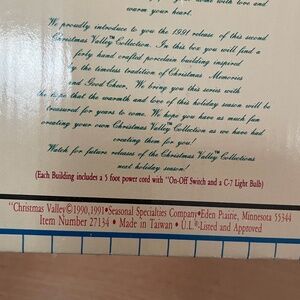 your home with love and
warm your heart.
We proudly introduce to you the 1991 release of this second
Christmas Valley™ Collection. In this box you will find a
finely hand crafted porcelain building inspired
by the timeless tradition of Christmas Memories
and Good Cheer. We bring you this series with
the hope that the warmth and love of this holiday season will be
treasured for years to come. We hope you have as much fun
creating your own Christmas Valley™ Collection as we have had
creating them for you!
Watch for future releases of the Christmas Valley™ Collections
next holiday season!
(Each Building includes a 5 foot power cord with "On-Off Switch and a C-7 Light Bulb)
"Christmas Valley©1990,1991•Seasonal Specialties Company•Eden Praine, Minnesota 55344
Item Number 27134 • Made in Taiwan • U.L.®-Listed and Approved